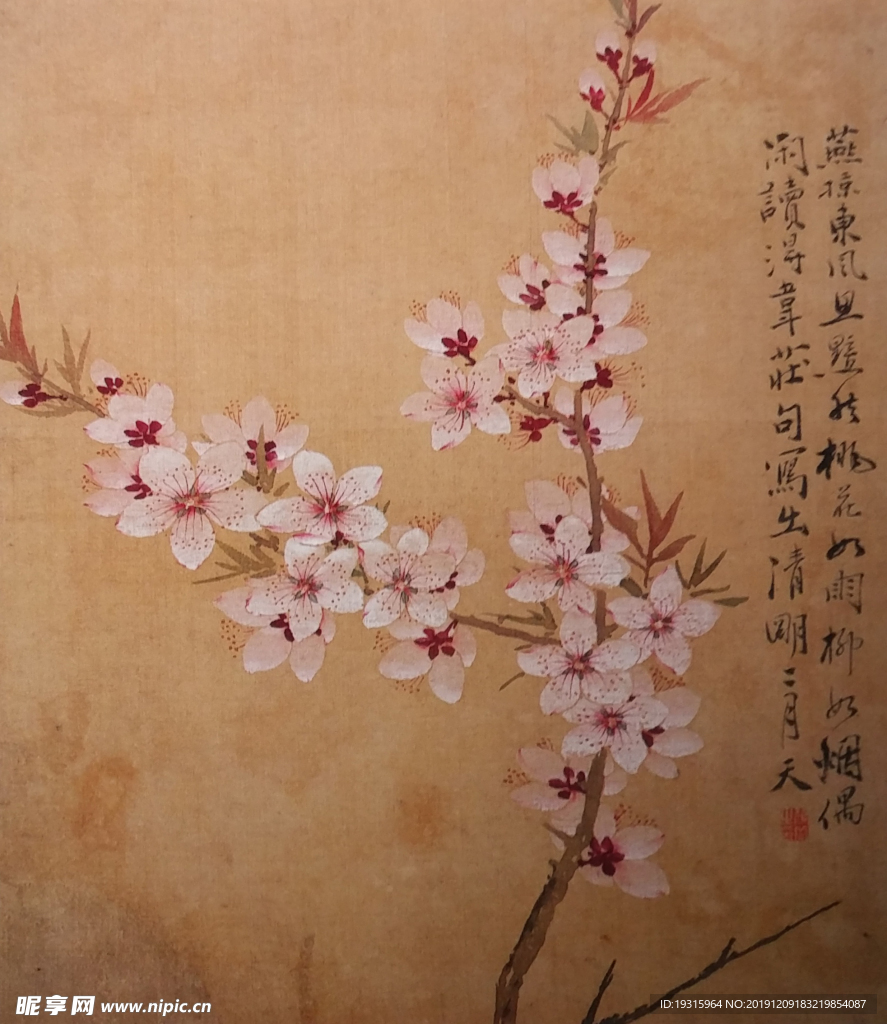 燕掠東風思黯然桃花如雨柳如烟偶
閑讀得韋莊句寫出清明二月天
昵享网 www.nipic.cn
ID:19315964 NO:20191209183219854087